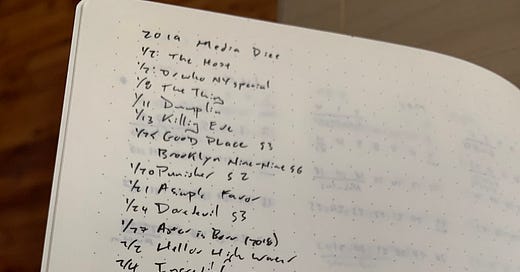 2019 Media Diet
1/2: The Host
1/2: Dr who NY special
1/8 The Thing
1/11 Dumplin
1/13 Killing Eve
Good Place S3
Brooklyn Nine-Nine S6
1/20 Punisher S2
1/21 A Simple Favor
1/24 Daredevil S3
1/27 (2018)
2/2 Hell or High Water
2/4